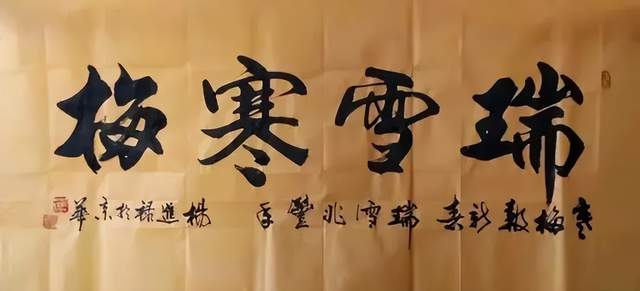 瑞雪寒梅
寒梅報新春 瑞雪兆豐年 楊進祿於京華